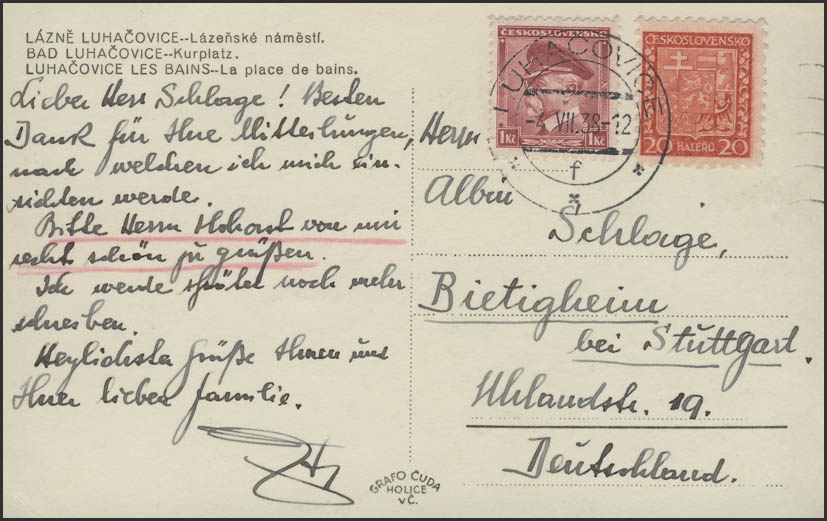 LÁZNĚ LUHAČOVICE--Lázeňské náměstí.
BAD LUHAČOVICE--Kurplatz.
LUHAČOVICE LES BAINS--La place de bains.
Lieber Herr Schlage! Besten
Dank für Ihre Mitteilungen,
nach welchen ich mich ein-
richten werde.
Bitte Herrn von mir
recht schön zu grüßen.
Ich werde später noch mehr
schreiben.
Herzlichste Grüße Ihnen und
Ihrer lieben Familie.
ČESKOSLOVENSKO
1Kč 1Kč
ČESKOSLOVENSKO
20 HALÉŘŮ 20
LUHAČOVICE
-4.VII.38-12
f
Herrn
Albin
Schlage,
Bietigheim
bei Stuttgart.
Uhlandstr. 19.
Deutschland.
GRAFO ČUDA
HOLICE
v Č.